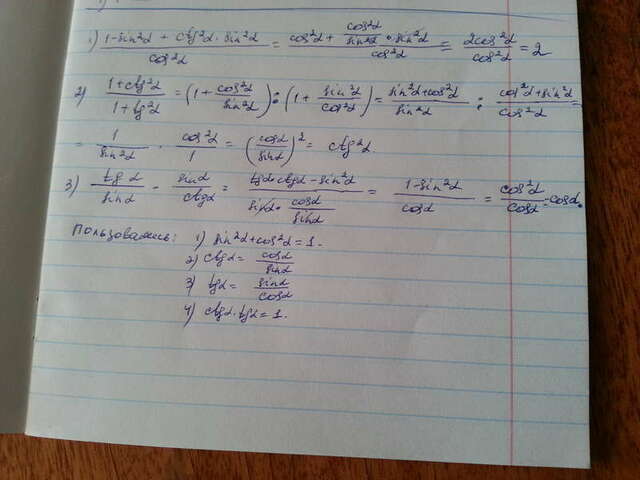 1) (1-sin²α + ctg²α · sin²α)/cos²α = (cos²α + cos²α/sin²α · sin²α)/cos²α = 2cos²α/cos²α = 2
2) (1+ctg²α)/(1+tg²α) = (1 + cos²α/sin²α) : (1 + sin²α/cos²α) = (sin²α+cos²α)/sin²α : (cos²α+sin²α)/cos²α =
= 1/sin²α · cos²α/1 = (cosα/sinα)² = ctg²α.
3) tgα/sinα - sinα/ctgα = (tgα·ctgα - sin²α)/(sinα · cosα/sinα) = (1-sin²α)/cosα = cos²α/cosα = cosα.
Пользовались: 1) sin²α+cos²α=1.
2) ctgα = cosα/sinα
3) tgα = sinα/cosα
4) ctgα·tgα=1.